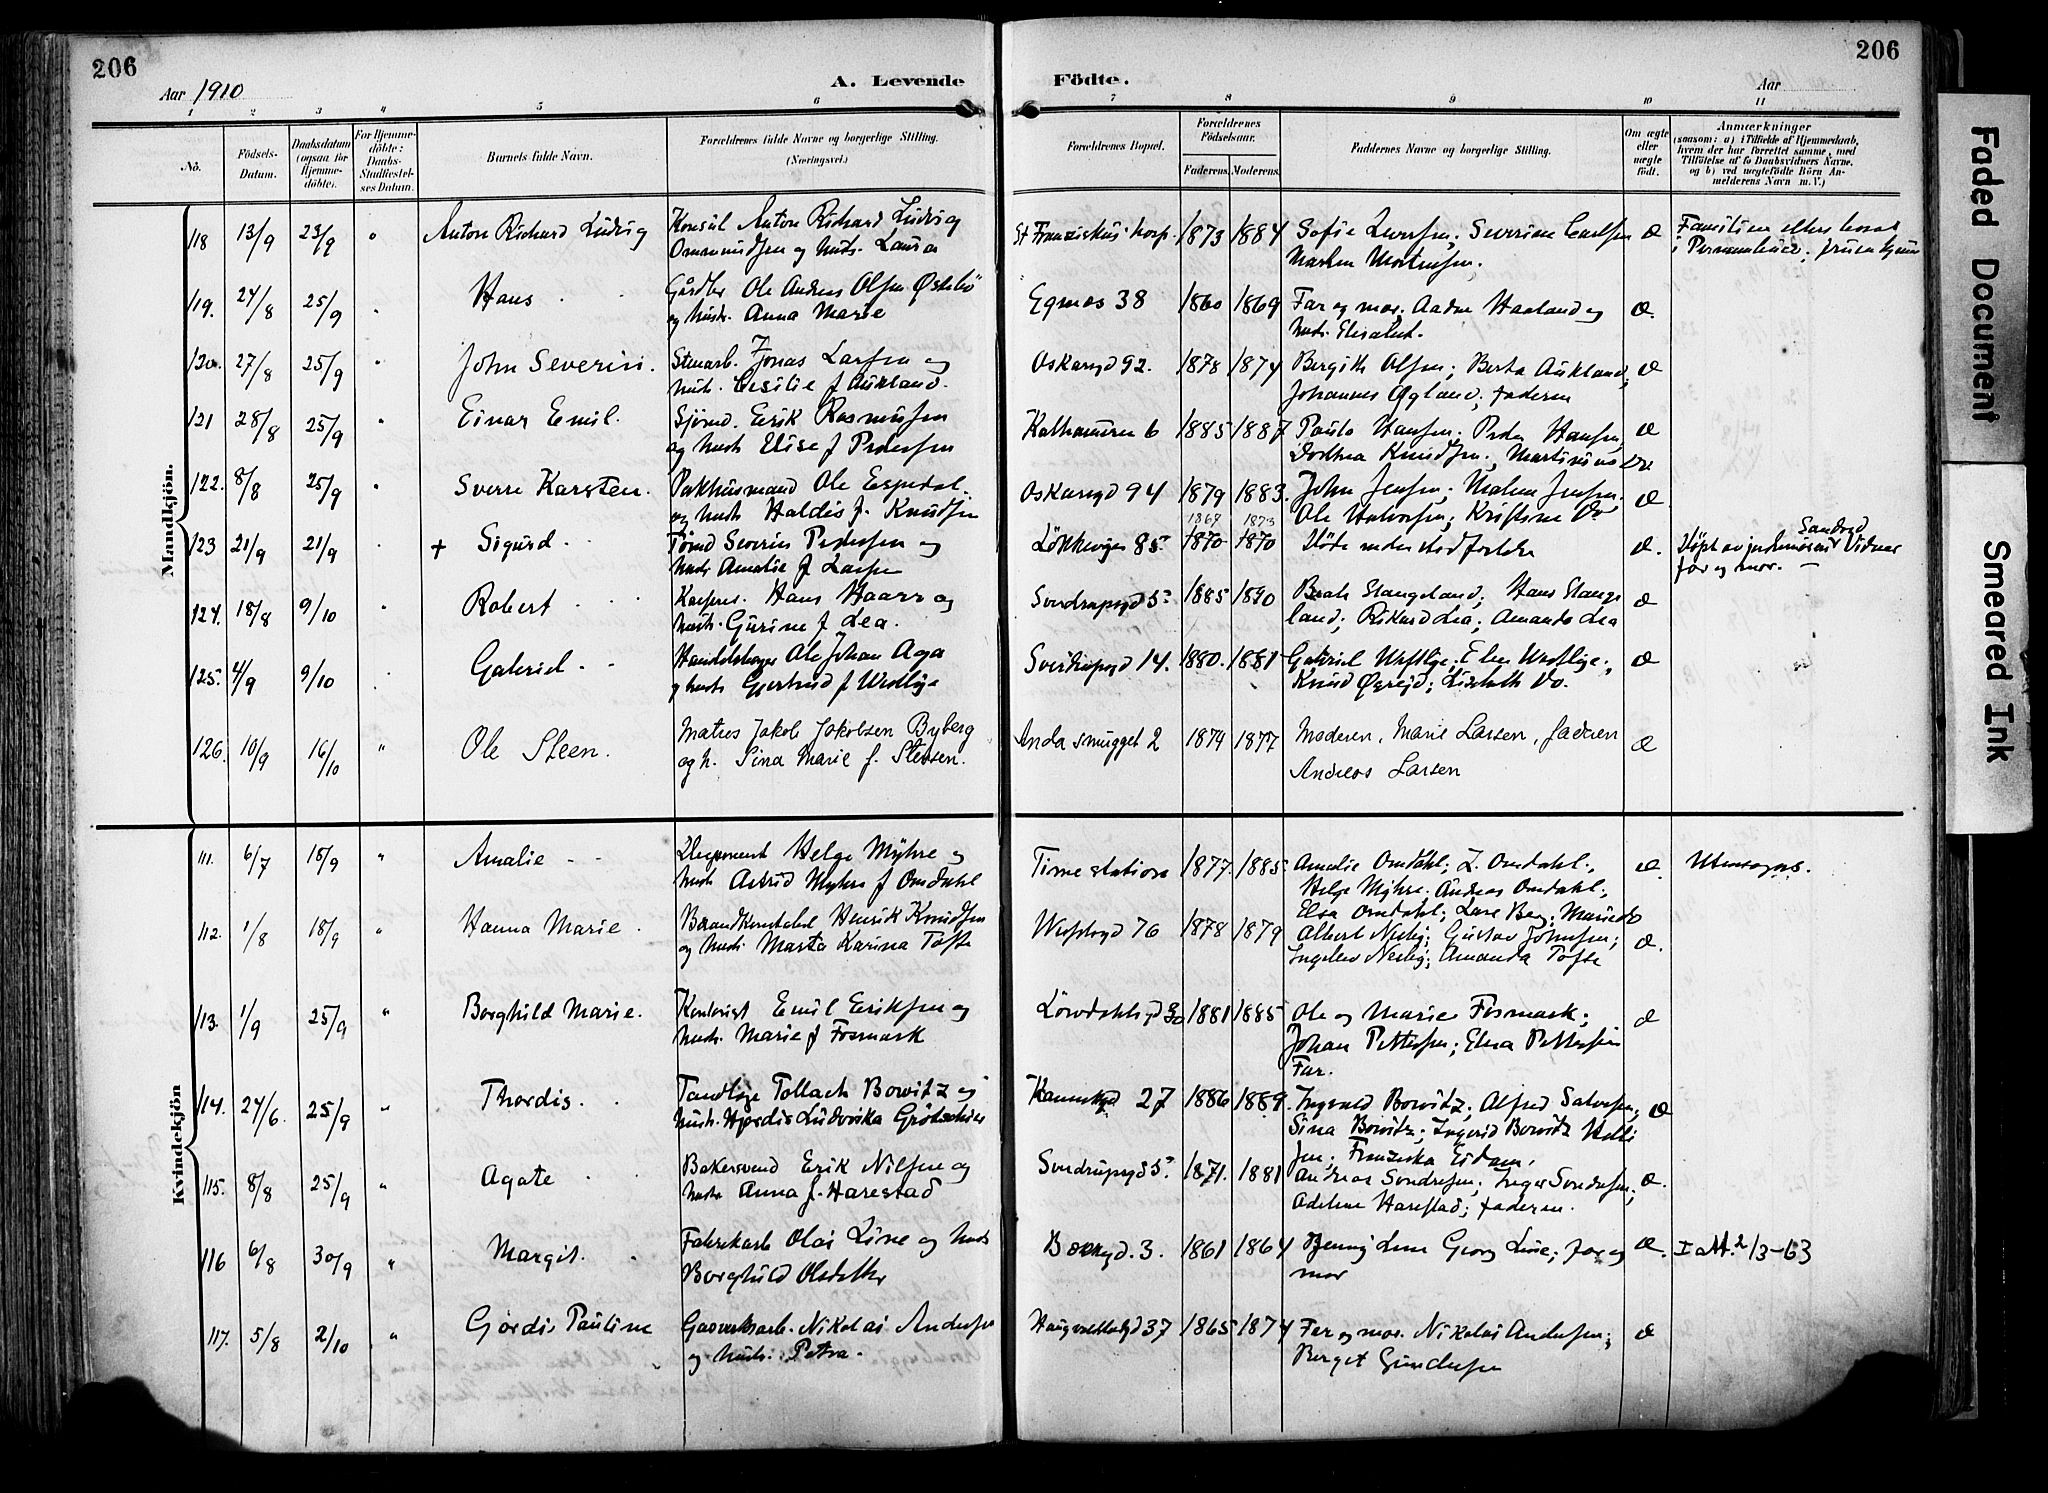 206
Aar 1910
A. Levende
Födte.
Aar
206
1 2 3 4 5 6 7 8 9 10 11
No.
Födsels-Datum.
Daabsdatum (ogsaa for Hjemme-döbte).
For Hjemme-döbte: Daabs-Stadfæstel-ses Datum.
Barnets fulde Navn.
Forældrenes fulde Navne og borgerlige Stilling.
(Næringsvei.)
Forældrenes Bopæl.
Forældrenes Födselsaar.
Faderens. Moderens.
Faddernes Navne og borgerlige Stilling.
Om ægte eller uægte födt.
Anmærkninger
(saasom: a) i Tilfælde af Hjemmedaab, hvem der har forrettet samme, med Tilföielse af to Daabsvidners Navne, og b) ved uægtefödte Börn An-melderens Navn m. V.)
Mandkjön.
118 13/9 23/9 " Anton Richard Ludvig Konsul Anton Richard Ludvig St Franziskus hosp. 1873 1884 Sofie ; Severine Carlsen æ Familien ellers bosat
Ommundsen og hust. Laura
119. 24/8 25/9 " Hans Gårdbr Ole Andreas Olsen Østebö Egnæs 38 1860 1869 Far og mor. Aadne Haaland og æ.
og hust. Anna Marie hust. Elisabet.
120. 27/8 25/9 " John Severin. Stuearb. Jonas Larsen og Oskarsgd 92. 1878 1874 Bergith Olsen; Berta Aukland; æ
hust. Cesilie f Aukland. Johannes Øgland; faderen
121 28/8 25/9 " Einar Emil. Sjömd. Erik Rasmussen Kalhammeren 6 1885 1887 Paula Hansen; Peder Hansen; æ
og hust. Elise f Pedersen Dorthea Knudsen; Martinius Do
122. 8/8 25/9 " Sverre Karsten. Pakhusmand Ole Espedal Oskarsgd 94 1879 1883. John Jensen; Malene Jensen; æ
og hust. Haldis f. Knudsen Ole Halvorsen; Kristine Do
123 21/9 21/9 + Sigurd Tömd Severin Pedersen og Lökkeveien 85. 1867 1870 1873 1870 Döde under stadfæstelse æ. Döpt av jordmor Sandved Vidner
hust. Amalie f Larsen far og mor.
124. 18/8 9/10 Robert Hans Haarr og Sondrupsgd 5 1885 1890 Berte Stangeland; Hans Stange- æ
hust. Gurine f Lea. land; Rikard Lea; Amanda Lea
125. 4/9 9/10 Gabriel Ole Johan Aga Sverdrupsgd 14. 1880. 1881 Gabriel Westlye; Elen Westlye; æ
og hust. Gjertrud f Westlye Knud Øgreid; Lisabeth Do.
126. 10/9 16/10 " Ole Steen. Matros Jakob Jakobsen Byberg Anda smugget 2 1874 1877 Moderen, Marie Larsen, faderen æ
og h. Sina Marie f. Steensen. Andreas Larsen
Kvindekjön
111. 6/7 18/9 " Amalie Disponent Helge Myhre og Time station 1877. 1885. Amalie Omdahl; L. Omdahl; æ. Utensogns.
hust. Astrid Myhre f Omdahl Helge Myhre. Andreas Omdahl;
Elsa Omdahl; Lars Berg; Marie do
112. 1/8 18/9 " Hanna Marie. Brandkonstabel Henrik Knudsen 76 1878 1879 Albert ; Gustav Johnsen; æ.
og hust. Marta Karina Tofte ; Amanda Tofte
113. 1/9 25/9 " Borghild Marie. Kontorist Emil Eriksen og Lövdahlsgd 30 1881 1885 Ole og Marie Fosmark; æ
hust. Marie f Fosmark Johan Pettersen; Elna Pettersen
Far.
114. 24/6. 25/9 " Thordis. Tandlæge Tollach Bowitz og Kannikgd 27 1886 1889. Ingvald Bowitz; Alfred Salvesen; æ
hust. Hjördis Ludovika Sina Bowitz; Ingerid Bowitz
Franziska Eidam;
115. 8/8 25/9 " Agate Bakersvend Erik Nilsen og Sondrupsgd 5. 1871. 1881 Andreas Sondresen; Inger Sondresen; æ.
hust. Anna f. Harestad Adeline Harestad; faderen.
116 6/8 30/9 " Margit. Fabrikarb Olai Line og hust. 3. 1861 1864 Line Georg Line; far og æ. I att. 2/3-63
Borghild Olsdatter mor
117. 5/8 2/10 " Gjördis Pauline Gasverksarb. Nikolai Andersen Haugvaldstadgd 37 1865 1874 Far og mor. Nikolai Andersen; æ
og hust. Petra. Berget Gundersen
Faded Document
Smeared Ink